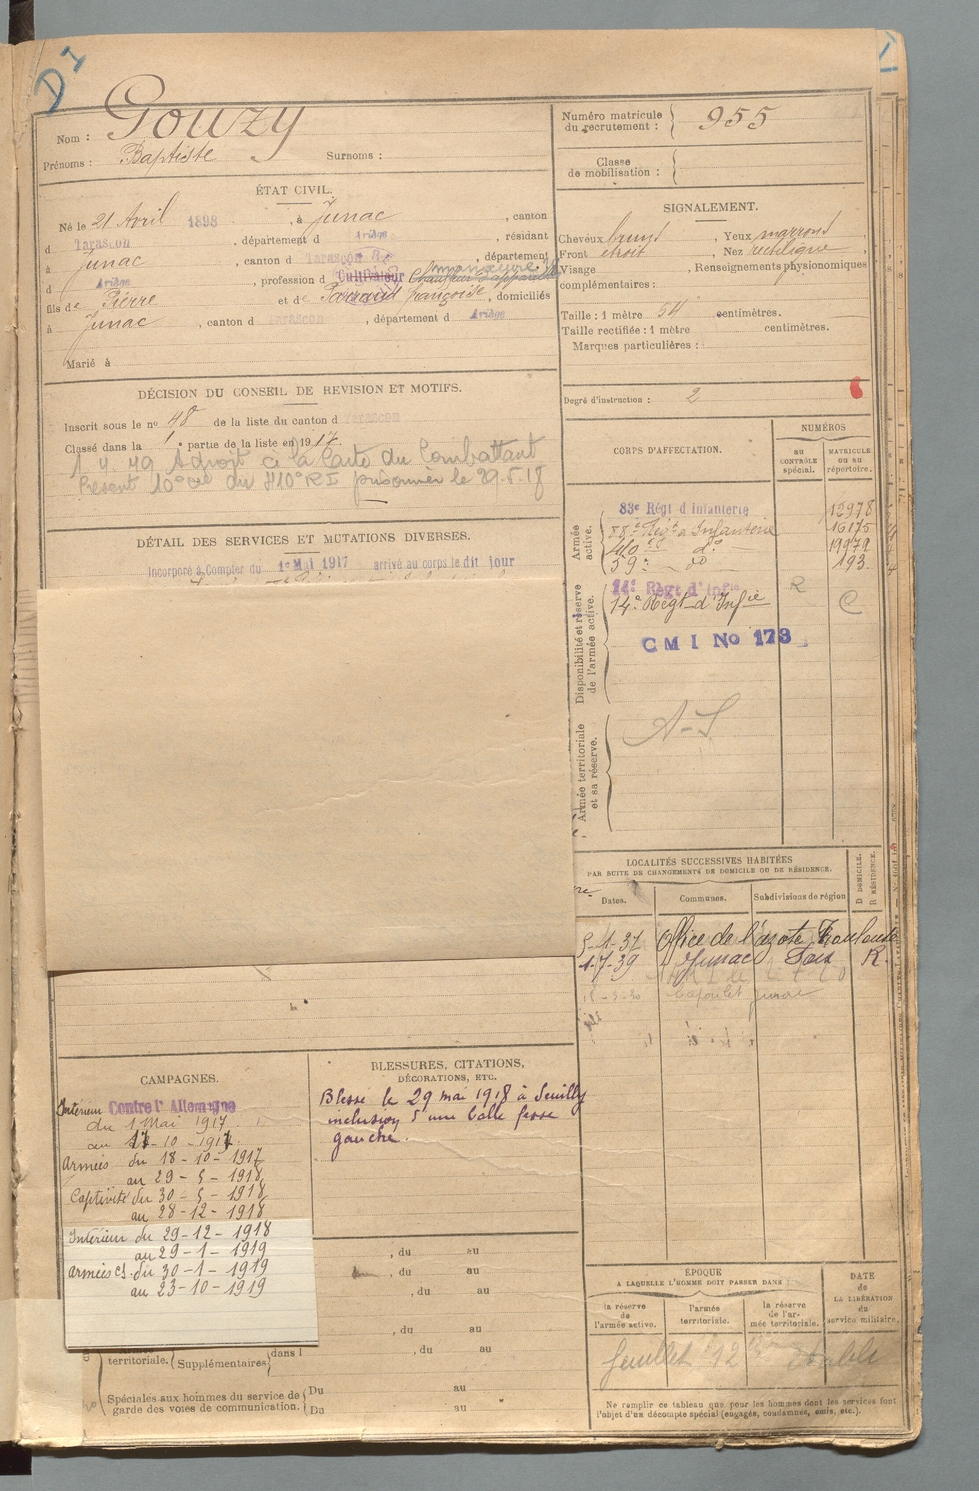 D1
Nom : Gouzy
Prénoms : Baptiste Surnoms :
Numéro matricule du recrutement : 955
Classe de mobilisation :
ÉTAT CIVIL.
Né le 21 Avril 1898, à Junac, canton
d Tarascon, département d Ariège, résidant
à Junac, canton d Tarascon, département
d Ariège, profession d Cultivateur manœuvre
fils de Pierre et de françoise, domiciliés
à Junac, canton d Tarascon, département d Ariège
Marié à
SIGNALEMENT.
Cheveux bruns, Yeux marrons
Front étroit, Nez rectiligne
Visage, Renseignements physionomiques
complémentaires :
Taille : 1 mètre 54 centimètres.
Taille rectifiée : 1 mètre centimètres.
Marques particulières :
Degré d'instruction : 2
DÉCISION DU CONSEIL DE REVISION ET MOTIFS.
Inscrit sous le no 48 de la liste du canton d Tarascon
Classé dans la 1e partie de la liste en 1917.
A droit à la Carte du Combattant
Présent 10e Cie du 410e RI prisonnier le 29.5.18
DÉTAIL DES SERVICES ET MUTATIONS DIVERSES.
Incorporé à Compter du 1er Mai 1917 arrivé au corps le dit jour
CORPS D'AFFECTATION.
NUMÉROS
AU CONTRÔLE spécial.
MATRICULE ou au répertoire.
Armée active.
83e Régt d'Infanterie 12978
88e Régt d'Infanterie 16175
410e do 19979
59e do 193
Disponibilité et réserve de l'armée active.
14e Régt d'Infie R
14e Régt d'Infie C
CMI No 173
Armée territoriale et sa réserve.
A-S
LOCALITÉS SUCCESSIVES HABITÉES
PAR SUITE DE CHANGEMENTS DE DOMICILE OU DE RÉSIDENCE.
Dates. Communes. Subdivisions de région D DOMICILE. R RÉSIDENCE.
5-1-37 Office de l'azote Toulouse
1-7-39 Junac Foix R.
Capoulet Junac
CAMPAGNES.
Intérieur Contre l'Allemagne
du 1 Mai 1917
au 17-10-1917.
Armées du 18-10-1917
au 29-5-1918
Captivité du 30-5-1918
au 28-12-1918
Intérieur du 29-12-1918
au 29-1-1919
Armées du 30-1-1919
au 23-10-1919
BLESSURES, CITATIONS,
DÉCORATIONS, ETC.
Blessé le 29 mai 1918 à
inclusion d'une balle fesse
gauche.
, du au
, du au
, du au
, du au
territoriale. Supplémentaires dans l , du au
Spéciales aux hommes du service de garde des voies de communication. Du au
Du au
ÉPOQUE
A LAQUELLE L'HOMME DOIT PASSER DANS :
la réserve de l'armée active.
l'armée territoriale.
la réserve de l'armée territoriale.
DATE de LA LIBÉRATION du service militaire.
feuillet 12
Ne remplir ce tableau que pour les hommes dont les services font
l'objet d'un décompte spécial (engagés, condamnés, omis, etc.).